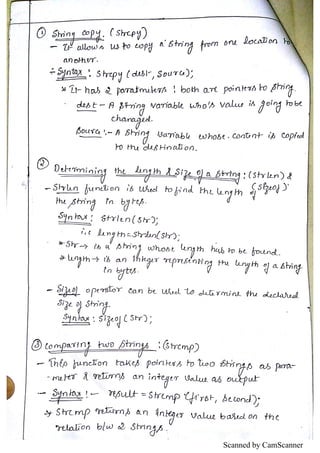 ① String copy. (Strcpy)
- It allows us to copy a String from one location to
another.
÷ Syntax : Strcpy (dest, Source);
* It has 2 paratmeters : both are pointers to String.
dest - A String Variable who's value is going to be
chanaged.
Source :- A String Variable whose content is copied
to the destination.
② Determining the length & Size of a String : (Strlen) &
(Sizeof) :
- Strlen function is used to find the length of
the String in bytes.
Syntax : Strlen (Str);
i.e length = Strlen (Str);
* Str → is a String whose length has to be found.
* length → is an Integer representing the length of a String
In bytes.
- Sizeof operator can be used to determine the declared
Size of String.
Syntax : Sizeof (Str);
③ Comparing two Strings : (Strcmp)
- This function takes pointers to two Strings as para-
meter & returns an integer value as output
- Syntax :- result = Strcmp (first, Second);
* Strcmp returns an Integer Value based on the
relation b/w 2 Strings.
Scanned by CamScanner